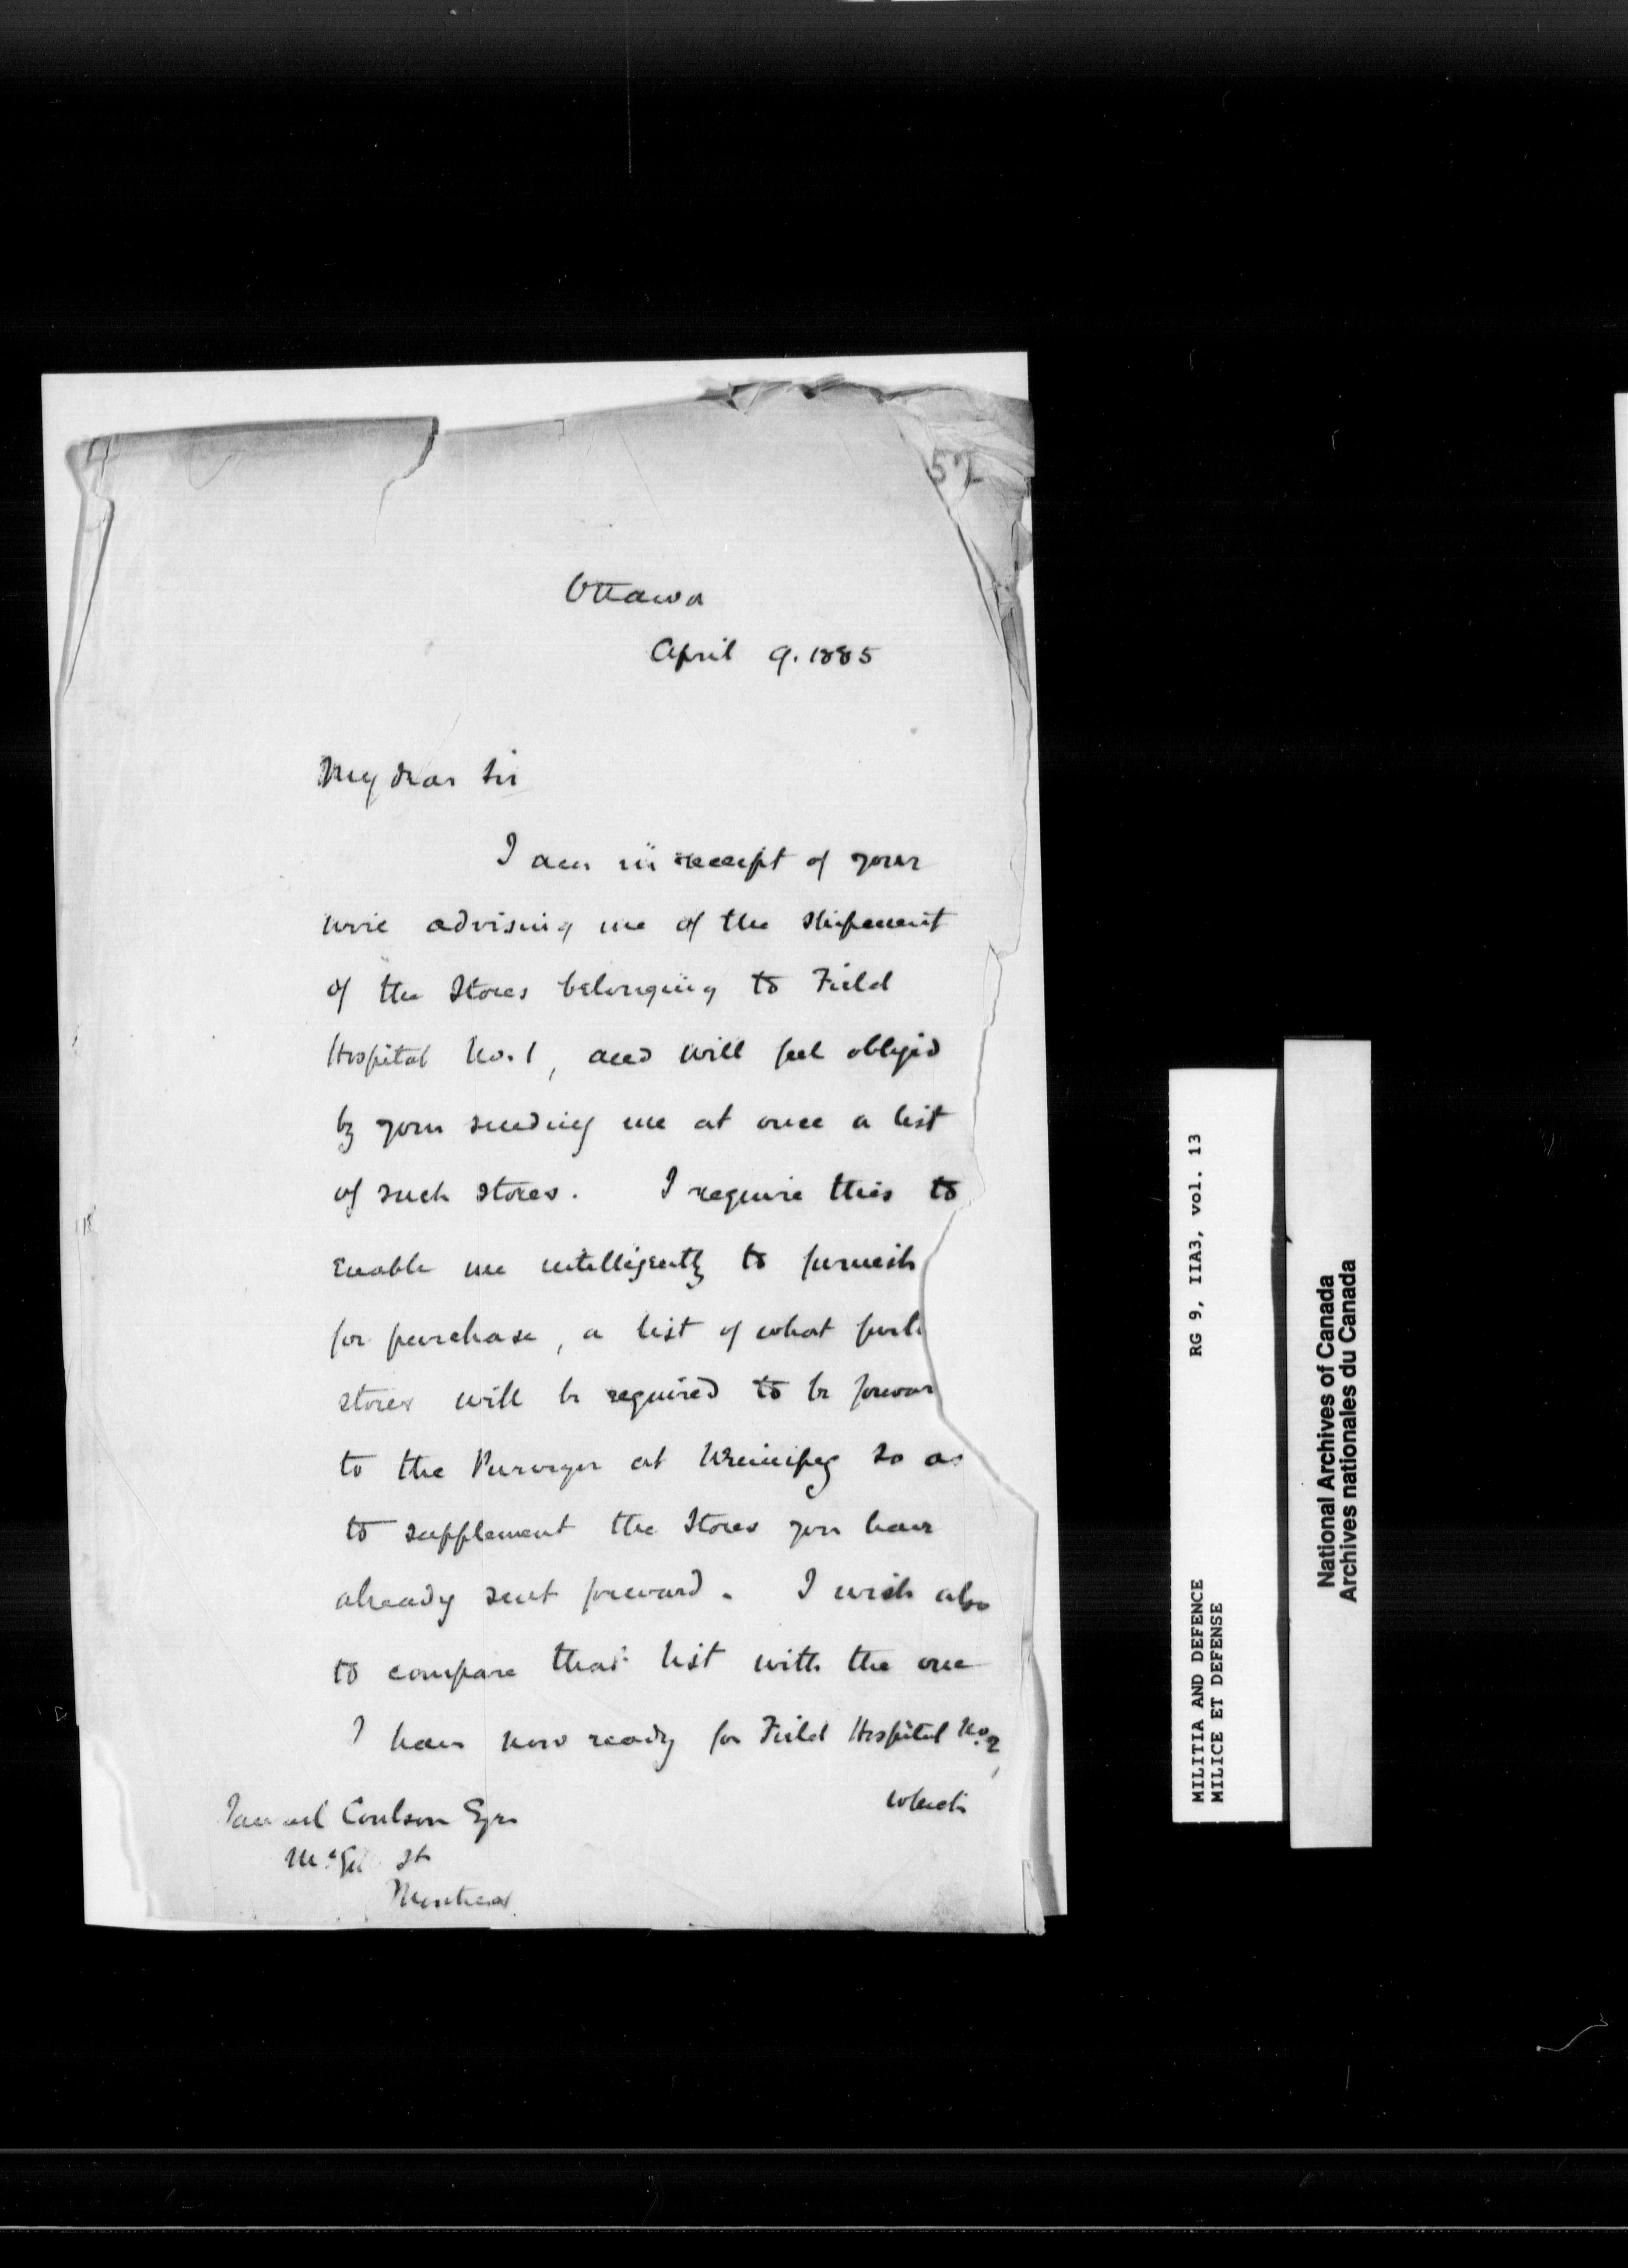 52
Ottawa
April 9. 1885
My dear Sir
I am in receipt of your
wire advising me of the shipment
of the Stores belonging to Field
Hospital No. 1, and will feel obliged
by your sending me at once a list
of such stores. I require this to
enable me intelligently to furnish
for purchase, a list of what
stores will be required to be forwar
to the Purveyor at Winnipeg so as
to supplement the Stores you have
already sent forward. I wish also
to compare that list with the one
I have now ready for Field Hospital No. 2,
which
Coulson Esqr
St
Montreal
RG 9, IIA3, vol. 13
MILITIA AND DEFENCE
MILICE ET DEFENSE
National Archives of Canada
Archives nationales du Canada